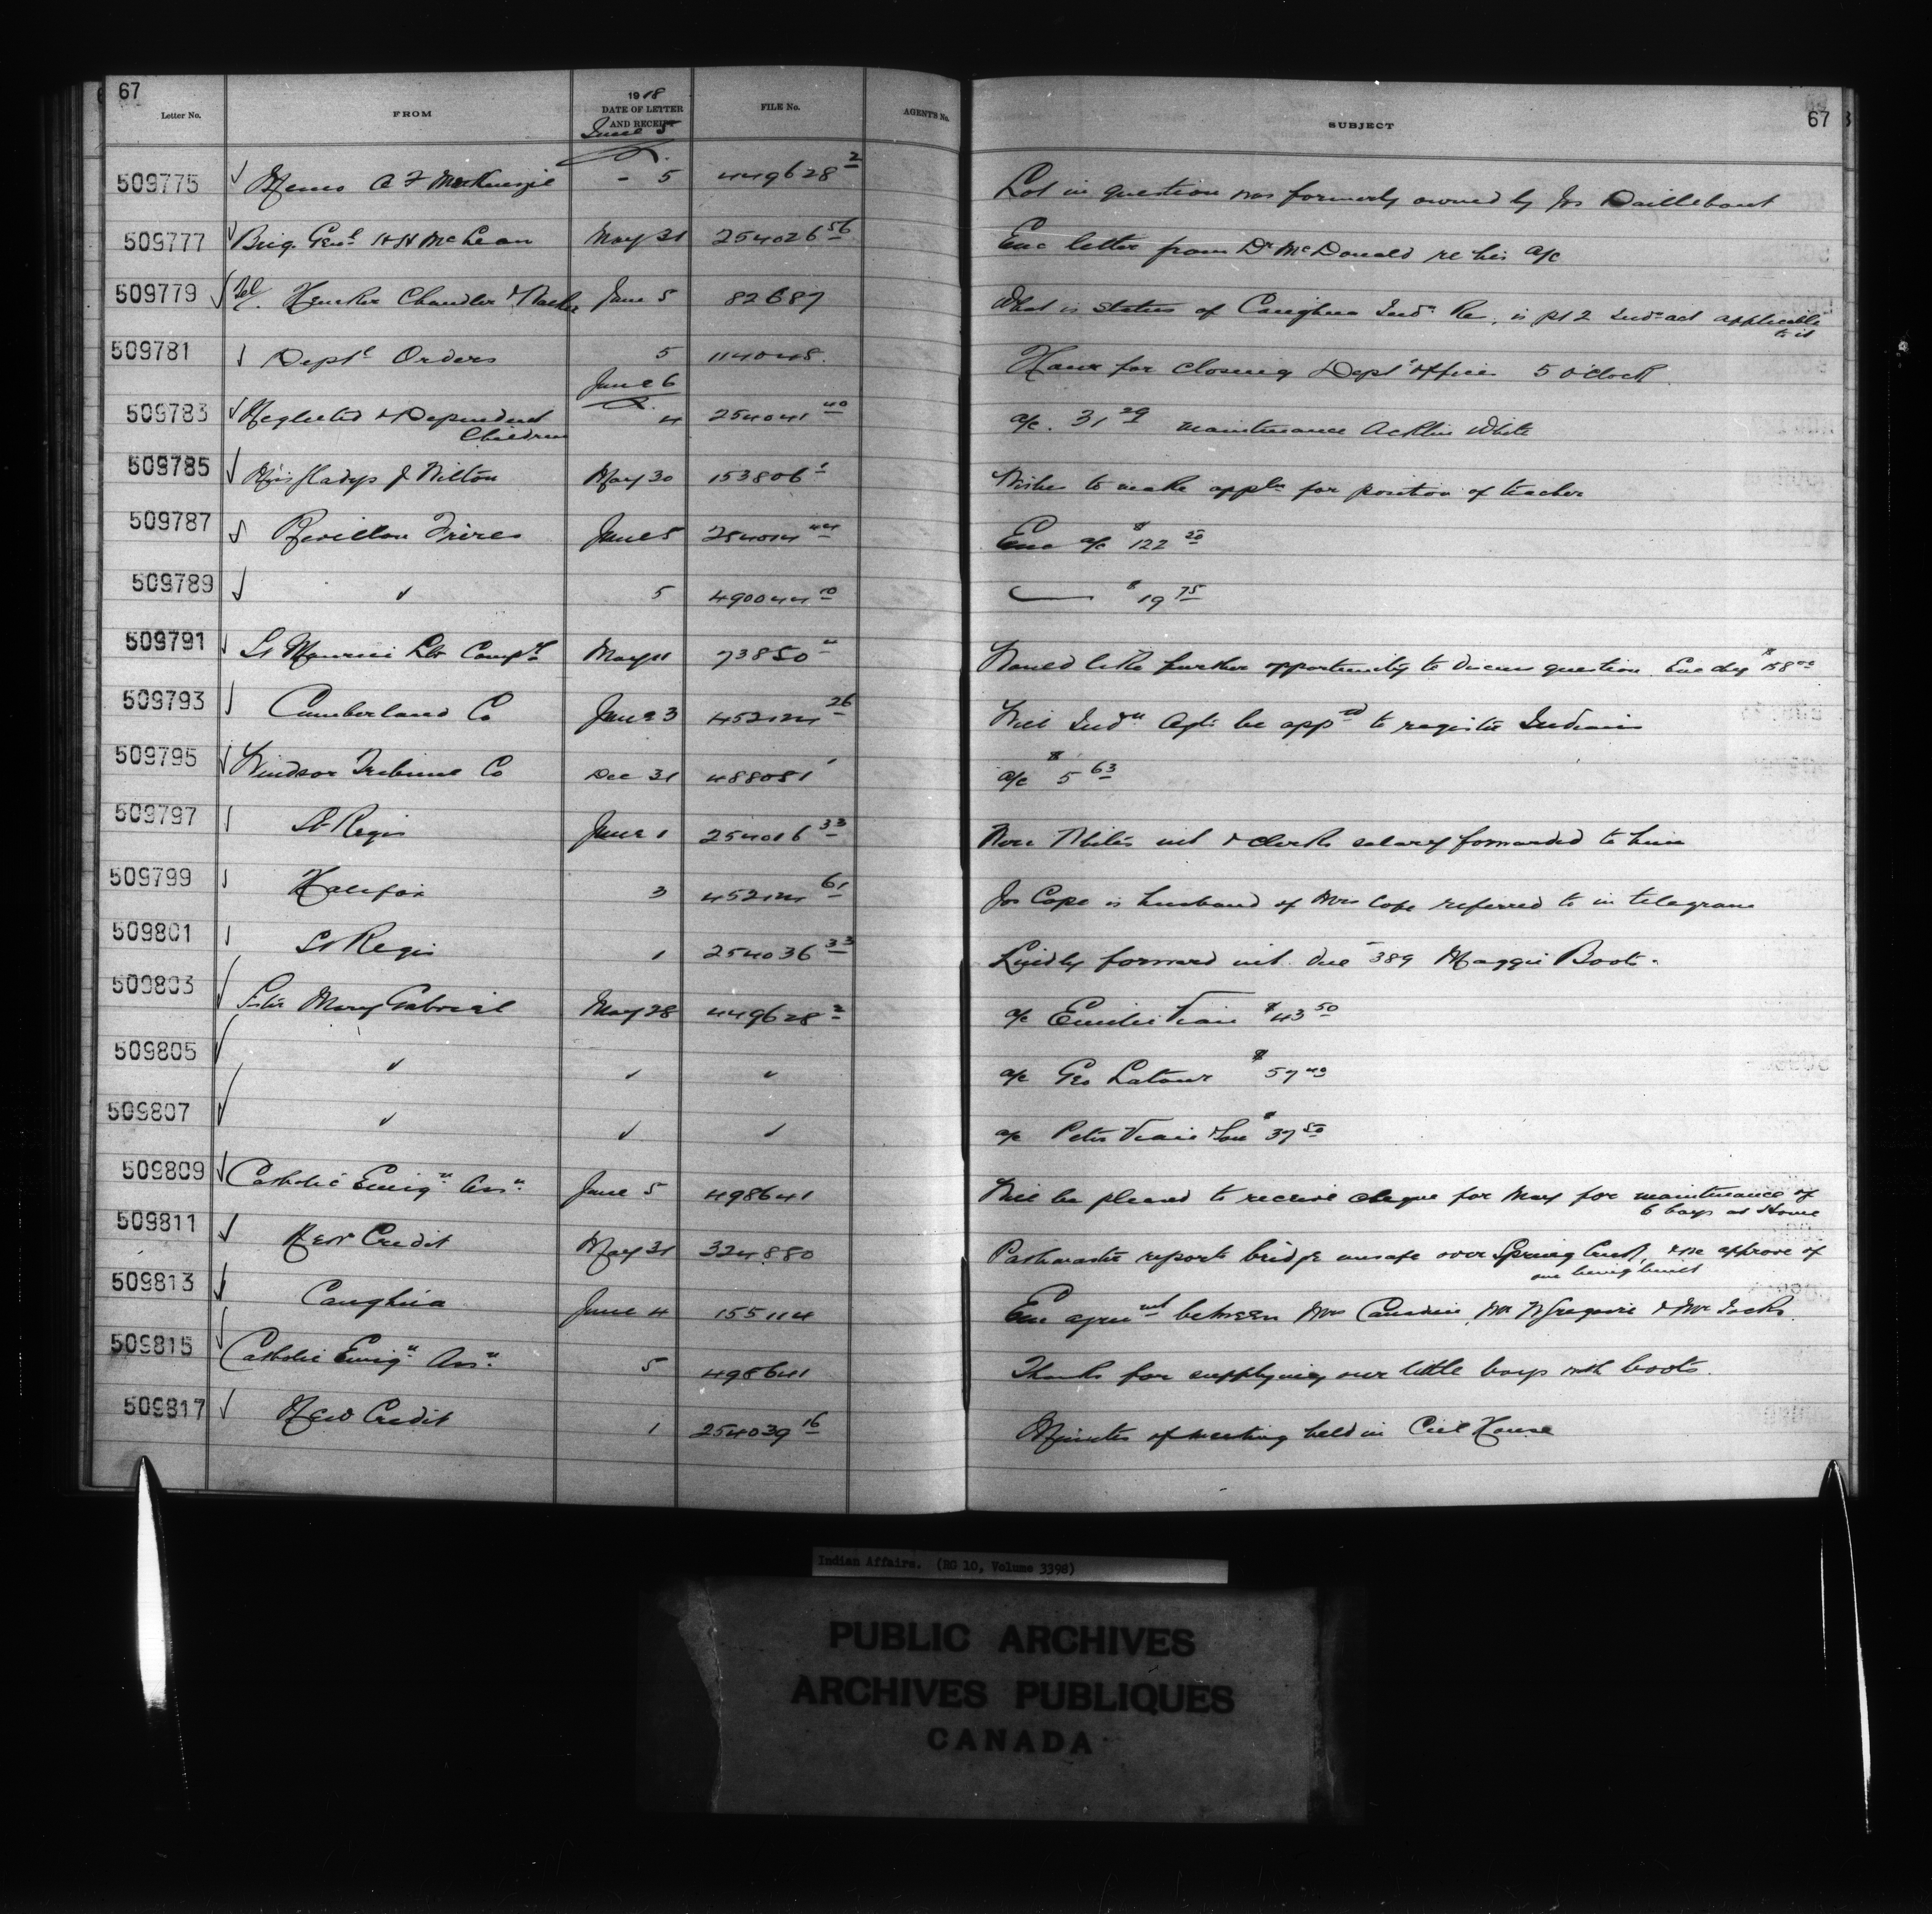 67
Letter No. FROM 1918 DATE OF LETTER AND RECEIPT FILE No. AGENT'S No. SUBJECT 67
June 5
509775 Memo A F MacKenzie - 5 449628 2 Lot in question was formerly owned by Jos Daillebout
509777 Brig. Genl H H McLean May 31 254026 56 Enc letter from Dr McDonald re his a/c
509779 Tel Henker Chandler & June 5 82687 What is status of Caughna Indn Re, is pt 2 Ind act applicable
to it
509781 Deptl Orders 5 114048. Hour for closing Deptl office 5 o'clock.
June 6
509783 Neglected & Dependent 4 254041 40 a/c. 31 29 maintenance White
Children
509785 Miss Gladys J Wilton May 30 153806 1 Wishes to make appln for position of teacher
509787 Revillon Frères June 5 254014 44 Enc a/c $122 20
509789 ✓ 5 490044 10 $19 75
509791 St Maurice Compy May 11 73850 Would like further opportunity to discuss question. Enc chq
509793 Cumberland Co June 3 452124 26 Will Indn Agts be appd to register Indians
509795 Windsor Tribune Co Dec 31 488081 1 a/c $5 63
509797 St Regis June 1 254016 33 int & clerks salary forwarded to him
509799 Halifax 3 452124 61 Jos Cope is husband of Mrs Cope referred to in telegram
509801 St Regis 1 254036 33 Kindly forward int. due 389 Maggie Boots.
509803 Sister Mary Gabriel May 28 449628 2 a/c $43 50
509805 ✓ ✓ ✓ a/c Geo Latour $57
509807 ✓ ✓ ✓ a/c Peter & Son $37 50
509809 Catholic Emign Assn. June 5 498641 Will be pleased to receive cheque for May for maintenance of
6 boys at Home
509811 New Credit May 31 324880 Pathmaster reports bridge unsafe over Spring Creek, & approve of
one being built
509813 Caughna June 4 155114 Enc agreemt between Mrs & Mr Jocks.
509815 Catholic Emign Assn. 5 498641 Thanks for supplying our little boys with boots.
509817 New Credit 1 254039 16 Minutes of meeting held in Ccil House
Indian Affairs. (RG 10, Volume 3398)
PUBLIC ARCHIVES
ARCHIVES PUBLIQUES
CANADA